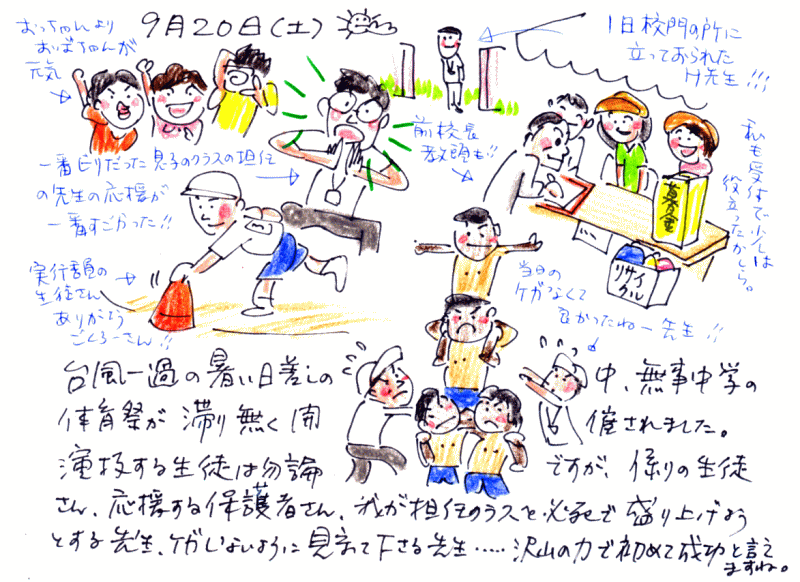 9月20日(土)
おっちゃんより
おばちゃんが
元気
1日校門の所に
立っておられた
H先生!!!
前校長
教頭も!!
私も受付で少しは
役立ったかしら。
募金
リサイクル
一番ビリだった息子のクラスの担任
の先生の応援が
一番すごかった!!
実行委員の
生徒さん
ありがとう
ごくろーさん!!
当日の
ケガなくて
良かったねー先生!!
台風一過の暑い日差しの中、無事中学の
体育祭が滞り無く開催されました。
演技する生徒は勿論ですが、係りの生徒
さん、応援する保護者さん、我が担任のクラスを必死で盛り上げよう
とする先生、ケガしないように見守って下さる先生‥‥‥沢山の力で初めて成功と言え
ますね。